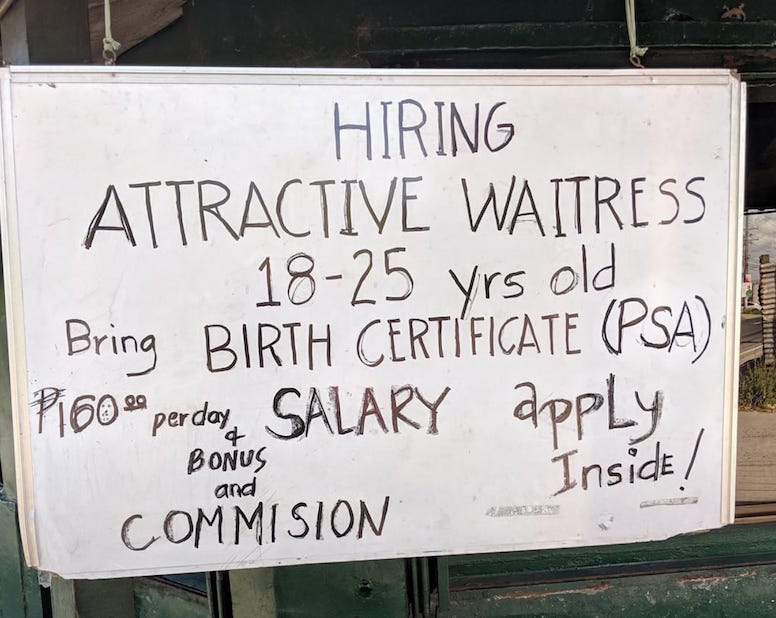 HIRING
ATTRACTIVE WAITRESS
18-25 yrs old
Bring BIRTH CERTIFICATE (PSA)
₱160.00 per day SALARY
&
BONUS
and
COMMISION
apply
Inside!